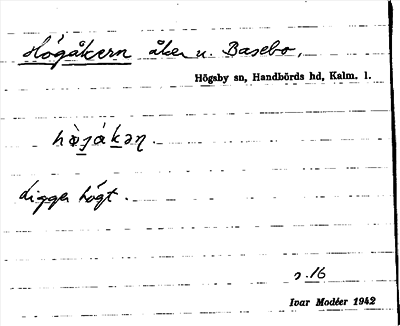 Högåkern åker u. Basebo,
Högsby sn, Handbörds hd, Kalm. l.
Ligger högt.
s. 16
Ivar Modéer 1942